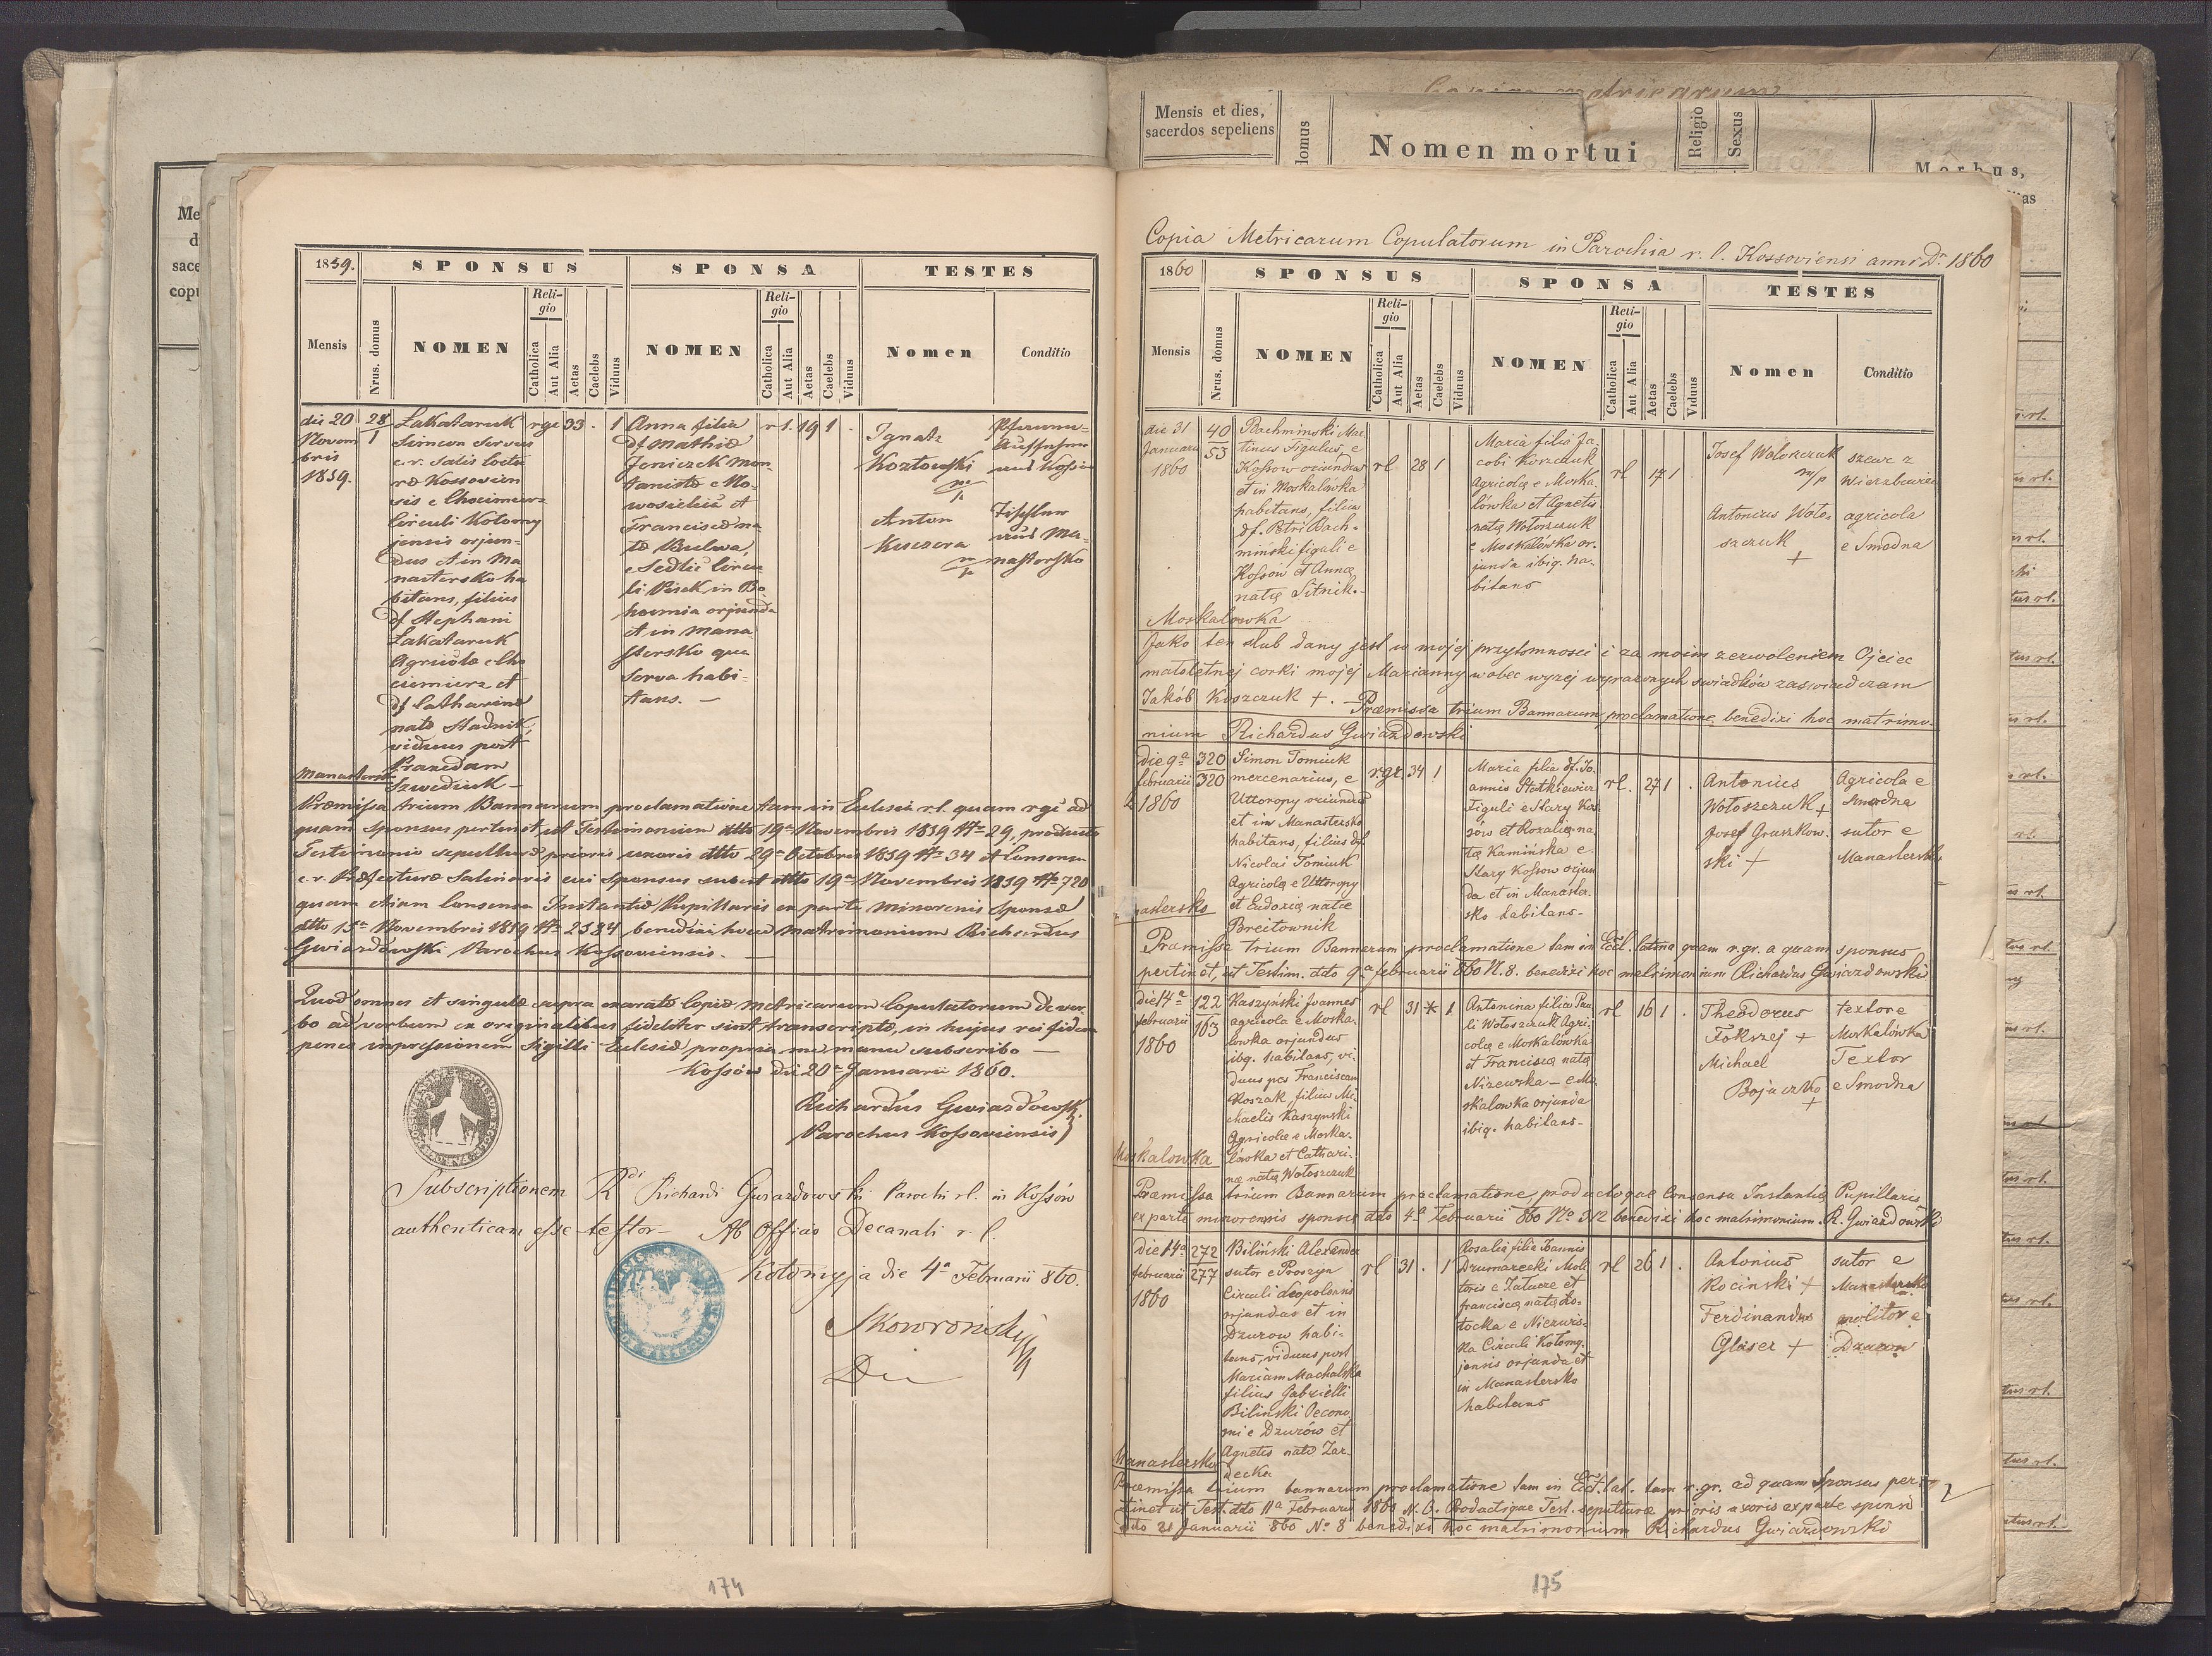 1859.
SPONSUS
SPONSA
TESTES
Mensis
Nrus. domus
NOMEN
Religio
Catholica
Aut Alia
Aetas
Caelebs
Viduus
NOMEN
Religio
Catholica
Aut Alia
Aetas
Caelebs
Viduus
Nomen
Conditio
die 20
Novem
bris
1859.
28
1
Lakataruk
Simeon Servus
c. r. Salis
Kossovien
sis e Chocimierz
Circuli Kolomy
jensis orjun=
dus et in Ma
nastersko ha
bitans, filius
df Stephani
Lakataruk
Agricolæ e Cho
cimierz et
df Catharinæ
natæ Stadnik,
viduus post
Szwediuk -
rgr
33
.
1
Anna filia
df Mathiæ
Joniczek Mon
tanistæ e No-
wosielica et
Franciscæ na
tæ Bulwa,
e Sedlic Circu
li Pisek in Bo
hoemia orjunda
et in Mana
stersko qua
Serva habi=
tans. —
r l.
19
1
.
Ignatz
Kozłowski
m/p
Anton
Kuczera
m/p
Tischler
aus Ma=
nastersko
Manastersko
Præmissa trium Bannorum proclamatione tam in Eclesia r.l. quam rgr ad
quam Sponsus pertinet, ut Testimonium ddto 19a Novembris 1859 No 29, producto
Testimonio sepulturæ prioris uxoris ddto 29a Octobris 1859 No 34 et Consensu
c. r. Præfecturæ Salinaris cui Sponsus subest ddto 19a Novembris 1859 No 720
quam etiam Consensu Instantiæ Pupillaris ex parte Minorenis Sponsæ
ddto 15a Novembris 1859 No 2524 benedixi hocce matrimonium Richardus
Gwiazdowski Parochus Kossoviensis. —
Quod omnes et singulæ supra exaratæ Copiæ metricarum Copulatorum de ver
bo ad verbum ex originalibus fideliter sint transcriptæ, in hujus rei fidem
penes impressionem Sigilli Eclesiæ propria me manu subscribo —
Kossów die 20a Januarii 1860.
Richardus Gwiazdowski
Parochus Kossoviensis
Subscriptionem Rdi Richardi Gwiazdowski Parochi rl. in Kossów
authenticam esse testor Ab Officio Decanali r. l.
Kołomyja die 4a Februarii 860.
Skowroński
174
Mensis et dies,
sacerdos sepeliens
domus
Nomen mortui
Religio
Sexus
Morbus,
Copia Metricarum Copulatorum in Parochia r. l. Kossoviensi anno Dr. 1860
1860
SPONSUS
SPONSA
TESTES
Mensis
Nrus. domus
NOMEN
Religio
Catholica
Aut Alia
Aetas
Caelebs
Viduus
NOMEN
Religio
Catholica
Aut Alia
Aetas
Caelebs
Viduus
Nomen
Conditio
die 31
Januarii
1860
40
53
Bachminski Mar
tinus Figulus, e
Kossow oriundus
et in Moskalówka
habitans, filius
df. Petri Bach=
miński figuli e
Kossow et Annæ
natæ Sitnik.-
rl
28
1
Maria filia Ja-
cobi Koszczuk
Agricolæ e Moska-
lówka et Agnetis
natæ Wołoszczuk
e Moskalówka or-
junda ibiq. ha-
bitans
rl
17
1
.
Josef Wołoszczuk
m/p
Antonius Woło-
szczuk
+
szewc z
Wierzbowiec
agricola
e Smodna
Moskalowka
Jako ten slub dany jest w mojej przytomnosci i za moim zezwoleniem Ojciec
małoletnej corki mojej Marianny w obec wyzej wyrazonych swiadków zaswiadczam
Jakób Koszczuk +. Præmissa trium Bannorum proclamatione benedixi hoc matrimo-
nium Richardus Gwiazdowski
die 9a
februarii
1860
320
320
Simon Tomiuk
mercenarius, e
Uttoropy oriundus
et in Manastersko
habitans, filius df.
Nicolai Tomiuk
Agricolæ e Uttoropy
et Eudoxiæ natæ
Breitownik
rgr.
34
1
Maria filia df. Jo-
annis Statkiewicz
Figuli e Stary Kos
sów et Rozaliæ na
tæ Kamińska e
Stary Kossow orjun
da et in Manaster-
sko habitans-
rl.
27
1
.
Antonius
Wołoszczuk +
Josef Gruszkow-
ski +
Agricola e
Smodna
sutor e
Manastersko
nastersko
Præmissa trium Bannorum proclamatione tam in Eccl. latina quam r.gr. a quam sponsus
pertinet, ut Testim. ddo 9a februarii 860 N. 8. benedixi hoc matrimonium Richardus Gwiazdowski
die 14a
februarii
1860
122
163
Kaszyński Joannes
agricola e Moska-
lowka orjundus
ibq. habitans, vi-
duus pos Franciscam
Koszak filius Mi-
chaelis Kaszynski
Agricolæ e Moska-
lówka et Cathari-
næ natæ Wołoszczuk
rl
31
*
1
Antonina filia Pau
li Wołoszczuk Agri-
colæ e Moskalówka
et Franciscæ natæ
Nizewska - e Mo
skalowka orjunda
ibiq. habitans-
rl
16
1
.
Theodorus
Tokszej +
Michael
Bojuczko
+
textor e
Moskalówka
Textor
e Smodna
Moskalowka
Præmissa trium Bannorum proclamatione productoque Consensu Instantiæ Pupillaris
ex parte minorensis sponsæ ddo 4a Februarii 860 No 312 benedixi hoc matrimonium. R. Gwiazdowski
die 14a
februarii
1860
272
277
Biliński Alexander
sutor e Proszyn
Circuli Leopolsens
orjundus et in
Dzurow habi-
tans, viduus post
Mariam Machalska
filius Gabrielli
Bilinski Oecono
mi e Dzurów et
Agnetis natæ Zar-
decka
rl
31
.
1
Rosalia filia Joannis
Drumarecki Moli
toris e Zatucze et
franciscæ natæ Zło-
tocka e Niezwis-
ka Circuli Kolomy-
jensis orjunda et
in Manastersko
habitans
rl
26
1
.
Antonius
Kocinski +
Ferdinandus
Glaser +
sutor e
Manastersko
molitor e
Dzurow
Manastersko
Præmissa trium bannorum proclamatione tam in Eccl. lat. tam r.gr. ad quam Sponsus per-
tinet ut Test. ddo 11a Februarii 1860 N. 6. Productique Test. sepulturæ prioris uxoris ex parte sponsi
ddo 21 Januarii 860 No 8 benedixi hoc matrimonium Richardus Gwiazdowski
175